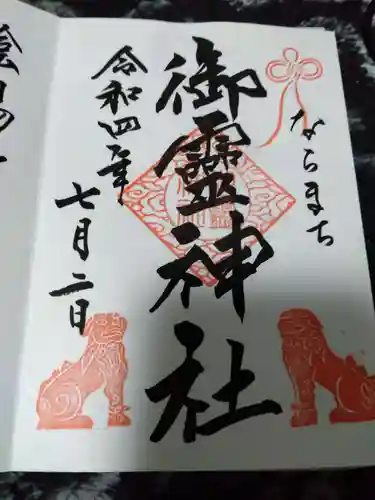 ならまち
御霊神社
令和四年
七月二日